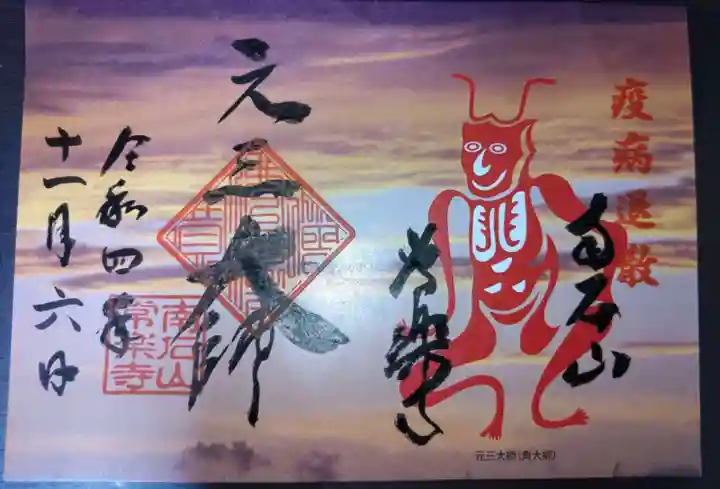 疫病退散
南石山
常楽寺
元三大師(角大師)
元三大師
令和四年
十一月六日
南石山
常楽寺